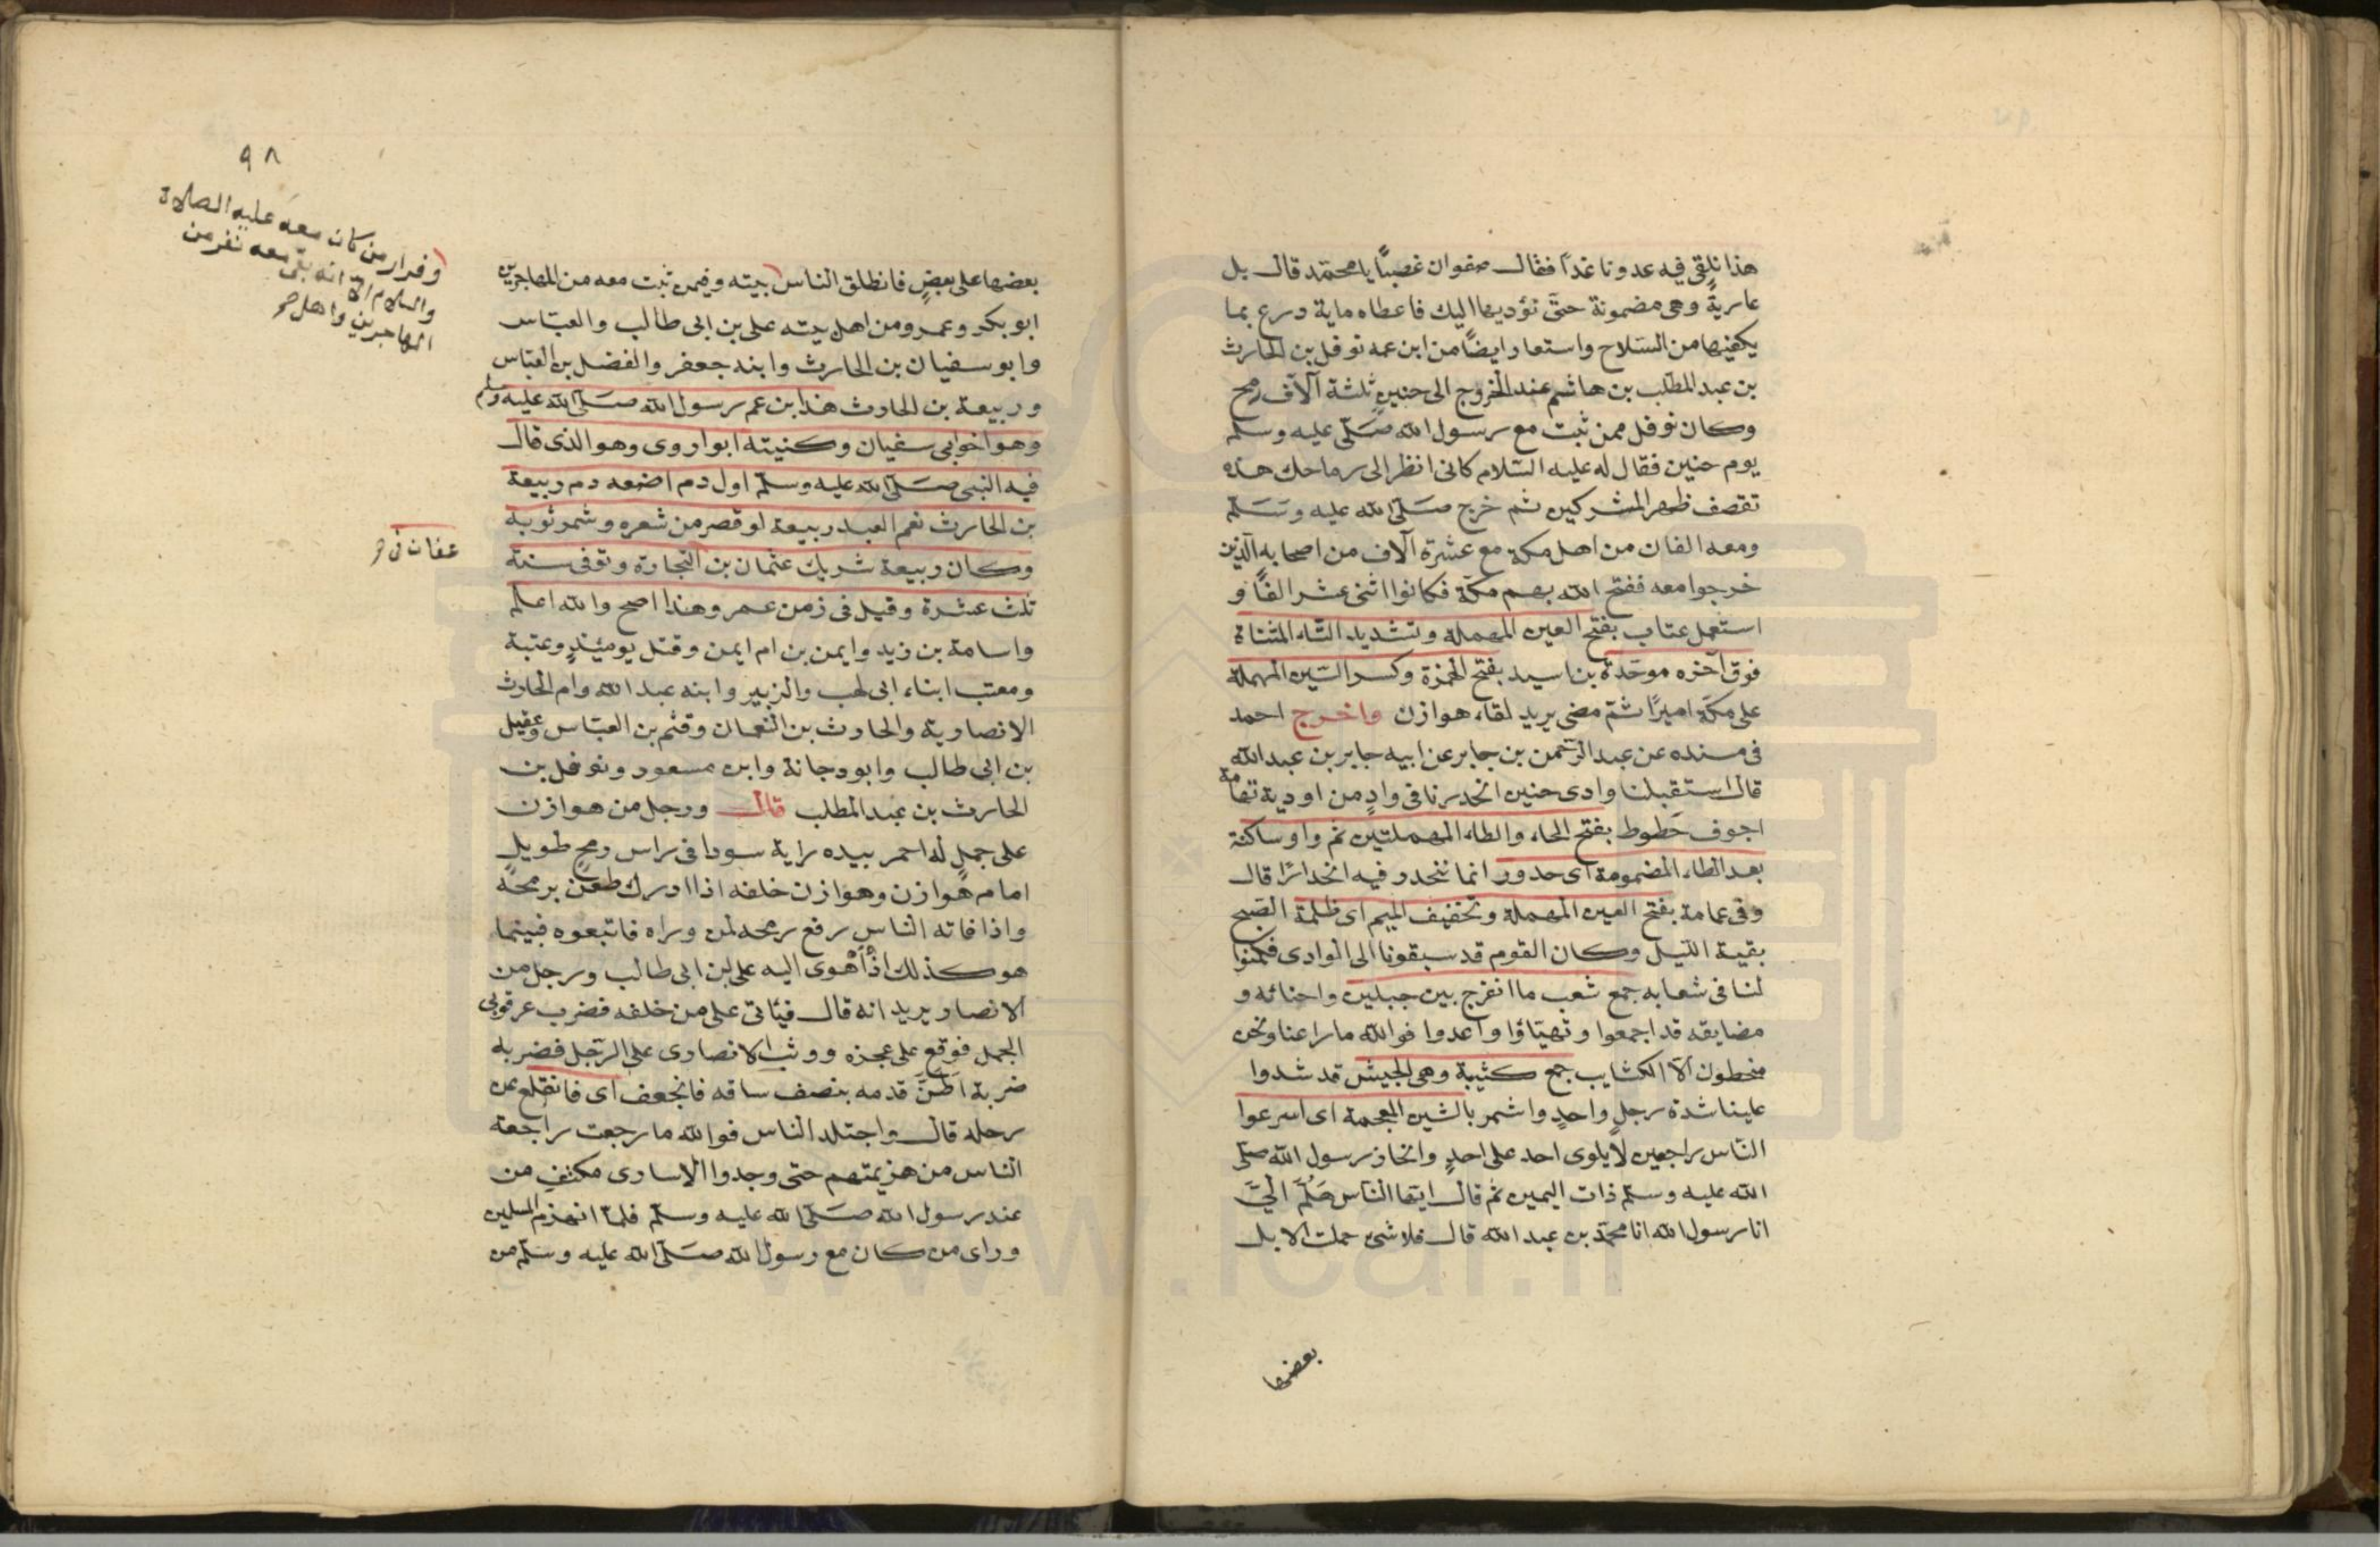 هذا نلقى فيه عدونا غدًا فقال صفوان غصبًا يا محمد قال بل
عارية وهى مضمونة حتى نؤديها اليك فاعطاه ماية درع بما
يكفيها من السلاح واستعار ايضًا من ابن عمه نوفل بن الحارث
بن عبد المطلب بن هاشم عند الخروج الى حنين ثلثة آلاف رمح
وكان نوفل ممن ثبت مع رسول الله صلى عليه وسلم
يوم حنين فقال له عليه السلام كانى انظر الى رماحك هذه
تقصف ظهر المشركين ثم خرج صلى الله عليه وسلم
ومعه الفان من اهل مكة مع عشرة آلاف من اصحابه الذين
خرجوا معه ففتح الله بهم مكة فكانوا اثنى عشر الفًا و
استعمل عتاب بفتح العين المهملة وتشديد التاء المثناة
فوق آخره موحدة بن اسيد بفتح الهمزة وكسر السين المهملة
على مكة اميرًا ثم مضى يريد لقاء هوازن واخرج احمد
فى مسنده عن عبد الرحمن بن جابر عن ابيه جابر بن عبد الله
قال استقبلنا وادى حنين انحدرنا فى وادٍ من اودية تهامة
اجوف حَطوط بفتح الحاء والطاء المهملتين ثم واو ساكنة
بعد الطاء المضمومة اى حدور انما ننحدر فيه انحدارًا قال
وفى عماية بفتح العين المهملة وتخفيف الميم اى ظلمة الصبح
بقية الليل وكان القوم قد سبقونا الى الوادى فكمنوا
لنا فى شعابه جمع شعب ما انفرج بين جبلين واحنائه و
مضايقه قد اجمعوا وتهيّاؤا واعدوا فوالله ما راعنا ونحن
منحطون الا الكتايب جمع كتيبة وهى الجيش قد شدوا
علينا شدة رجلٍ واحدٍ واشمر بالشين المعجمة اى اسرعوا
الناس راجعين لا يلوى احد على احدٍ وانحاز رسول الله صلى
الله عليه وسلم ذات اليمين ثم قال ايها الناس هَلُمَّ الىَّ
انا رسول الله انا محمد بن عبد الله قال فلا شئ حملت الابل
بعضها
٩٨
وفرار من كان معه عليه الصلاة
والسلام الا انه بقى معه نفر من
المهاجرين واهل صح
بعضها على بعضٍ فانطلق الناس بيته وفيمن ثبت معه من المهاجرين
ابو بكر وعمر ومن اهل بيته على بن ابى طالب والعباس
وابو سفيان بن الحارث وابنه جعفر والفضل بن العباس
وربيعة بن الحارث هذا ابن عم رسول الله صلى الله عليه وسلم
وهو اخو ابى سفيان وكنيته ابو اروى وهو الذى قال
فيه النبى صلى الله عليه وسلم اول دم اضعه دم ربيعة
بن الحارث نعم العبد ربيعة لو قصر من شعره وشمر ثوبه
وكان ربيعة شريك عثمان بن التجارة وتوفى سنة
عفان فى صح
ثلث عشرة وقيل فى زمن عمر وهذا اصح والله اعلم
واسامة بن زيد وايمن بن ام ايمن وقتل يومئذٍ وعتبة
ومعتب ابناء ابى لهب والزبير وابنه عبد الله وام الحارث
الانصارية والحارث بن النعمان وقثم بن العباس وعقيل
بن ابى طالب وابو دجانة وابن مسعود ونوفل بن
الحارث بن عبد المطلب قال ورجل من هوازن
على جملٍ له احمر بيده راية سودا فى راس رمحٍ طويلٍ
امام هوازن وهوازن خلفه اذا ادرك طعن برمحه
واذا فاته الناس رفع رمحه لمن وراه فاتبعوه فبينما
هو كذلك اذ اهْوى اليه على بن ابى طالب ورجل من
الانصار يريد انه قال فيأتى على من خلفه فضرب عرقوبى
الجمل فوقع على عجزه ووثب الانصارى على الرجل فضربه
ضربة اَطَنَّ قدمه بنصف ساقه فانجعف اى فانقلع عن
رحله قال واجتلد الناس فوالله ما رجعت راجعة
الناس من هزيمتهم حتى وجدوا الاسارى مكتفين من
عند رسول الله صلى الله عليه وسلم فلما انهزم المسلمين
وراى من كان مع رسول الله صلى الله عليه وسلم من